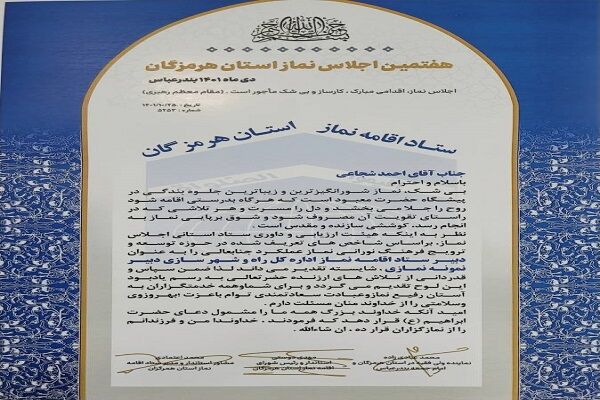 هفتمین اجلاس نماز استان هرمزگان
دی ماه ۱۴۰۱ بندرعباس
اجلاس نماز، اقدامی مبارک ، کارساز و بی شک مأجور است . (مقام معظم رهبری)
تاریخ : ۱۴۰۱/۱۰/۲۵
شماره : ۵۲۵۳
ستاد اقامه نماز استان هرمزگان
جناب آقای احمد شجاعی
باسلام و احترام
بی شک، نماز شورانگیزترین و زیباترین جلوه بندگی در
پیشگاه حضرت معبود است که هرگاه بدرستی اقامه شود
روح را جلا می بخشد و دل را مسرت و هر تلاشی که در
راستای تقویت آن مصروف شود و شوق برپایی نماز به
انجام رسد، کوششی سازنده و مقدس است .
نظر به اینکه هیئت ارزیابی و داوری ستاد استانی اجلاس
نماز، براساس شاخص های تعریف شده در حوزه توسعه و
ترویج فرهنگ نورانی نماز عملکرد جنابعالی را به عنوان
دبیر ستاد اقامه نماز اداره کل راه و شهر سازی دبیر
نمونه نمازی . شایسته تقدیر می داند، لذا ضمن سپاس و
قدردانی از تلاش های ارزنده حضرتعالی به رسم یادبود
این لوح تقدیم می گردد و برای شما و همه خدمتگزاران به
آستان رفیع نماز و عبادت، سعادتمندی توام با عزت ، بهروزی و
سلامتی را از خداوند منان مسئلت دارم .
امید آنکه خداوند بزرگ همه ما را مشمول دعای حضرت
ابراهیم (ع) قرار دهد که فرمودند . خداوندا من و فرزندانم
را از نمازگزاران قرار ده . ان شاءالله .
محمد عبادی زاده
نماینده ولی فقیه در استان هرمزگان و
امام جمعه بندرعباس
مهدی دوستی
استاندار و رئیس شورای
اقامه نماز استان هرمزگان
محمد اعتمادی
مشاور استاندار و مدیر ستاد اقامه
نماز استان هرمزگان